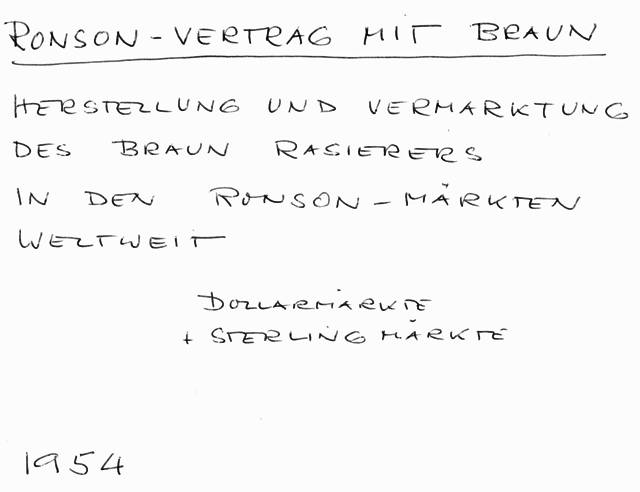 RONSON-VERTRAG MIT BRAUN
HERSTELLUNG UND VERMARKTUNG
DES BRAUN RASIERERS
IN DEN RONSON-MÄRKTEN
WELTWEIT
DOLLARMÄRKTE
+ STERLINGMÄRKTE
1954